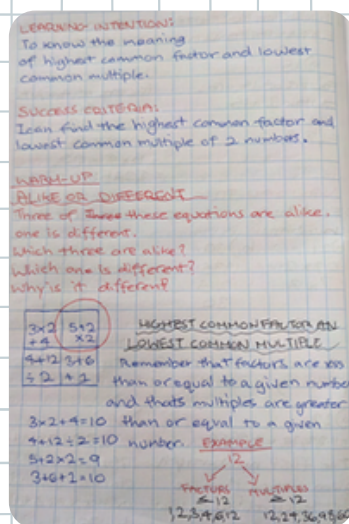 LEARNING INTENTION:
To know the meaning
of highest common factor and lowest
common multiple.
SUCCESS CRITERIA:
I can find the highest common factor and
lowest common multiple of 2 numbers.
WARM-UP
ALIKE OR DIFFERENT
Three of these equations are alike.
one is different.
Which three are alike?
Which one is different?
Why is it different?
3×2 5+2
+4 ×2
4+12 3+6
÷2 +1
3×2+4=10
4+12÷2=10
5+2×2=9
3+6+1=10
HIGHEST COMMON FACTOR AN
LOWEST COMMON MULTIPLE
Remember that factors are less
than or equal to a given numbe
and thats multiples are greater
than or equal to a given
number. EXAMPLE
12
FACTORS MULTIPLES
≤12 ≥12
1,2,3,4,6,12 12,24,36,48,60